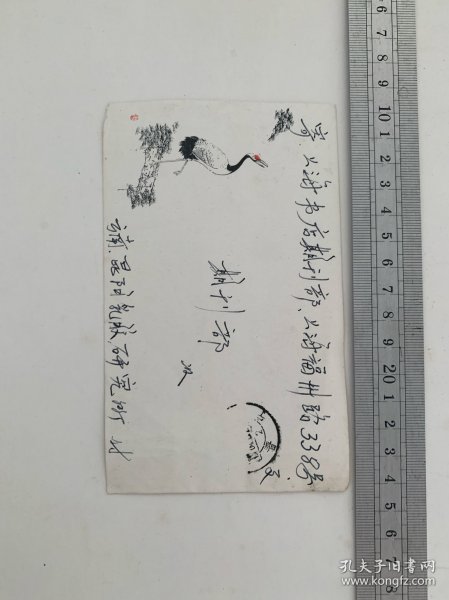 寄 上海书店期刊部、上海福州路338号
期刊部
收
云南昆阳乳胶研究所
6
7
8
9
10
1
2
3
4
5
6
7
8
9
20
1
2
3
4
5
6
7
8
孔夫子旧书网
www.kongfz.com